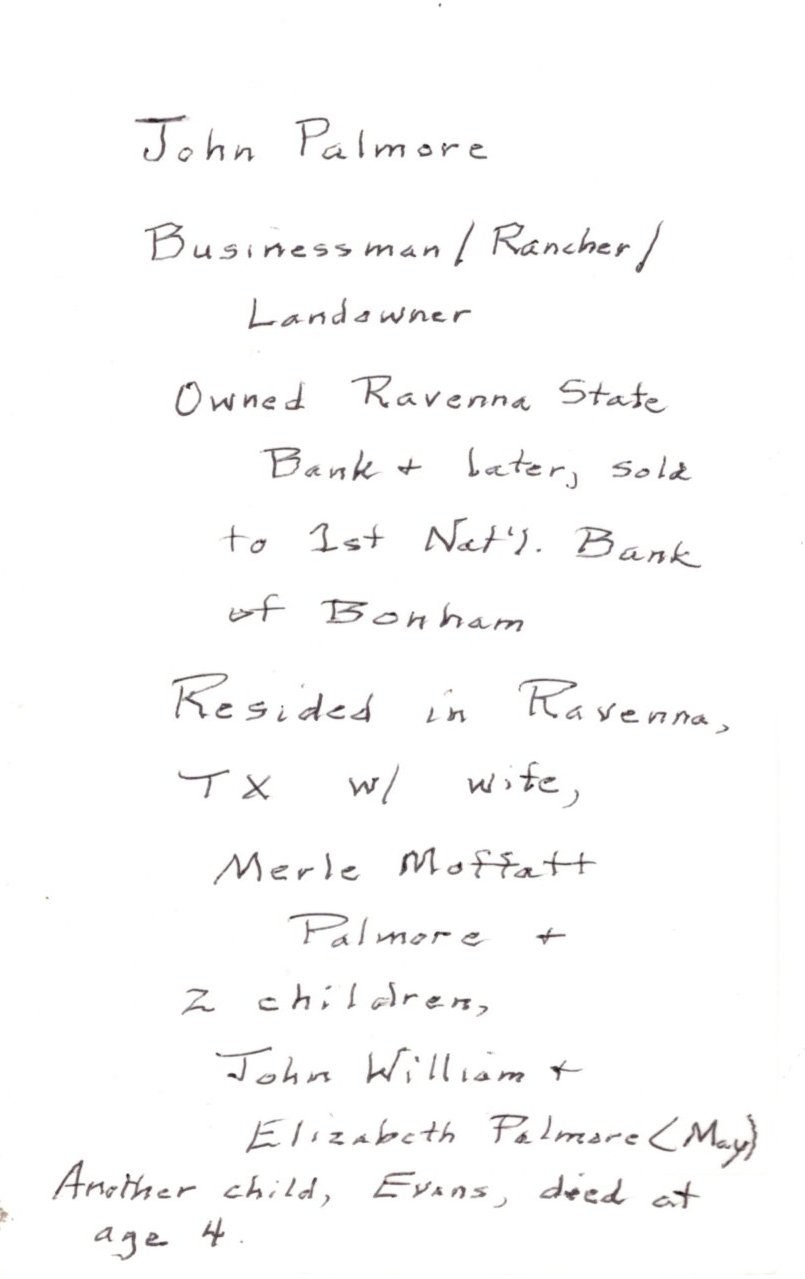 John Palmore
Businessman/Rancher/
Landowner
Owned Ravenna State
Bank + later, sold
to 1st Nat'l. Bank
of Bonham
Resided in Ravenna,
TX w/ wife,
Merle Moffatt
Palmore +
2 children,
John William +
Elizabeth Palmore (May)
Another child, Evans, died at
age 4.